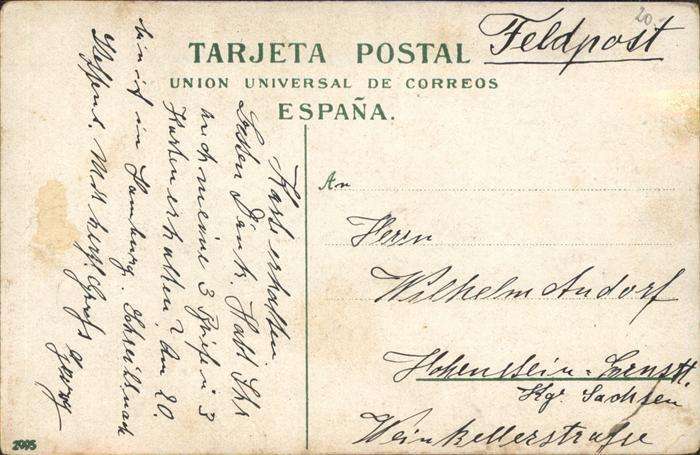 20.
Feldpost
TARJETA POSTAL
UNION UNIVERSAL DE CORREOS
ESPAÑA.
Karte erhalten
Besten Dank. Habt Ihr
auch meine 3 Briefe u 3
Karten erhalten? Am 20.
bin ich in Hamburg. Schreibt nach
Mit herzl. Gruß
Georg
An
Herrn
Wilhelm Andorf
Hohenstein-Ernstth.
Kgr. Sachsen
Weinkellerstraße
2995